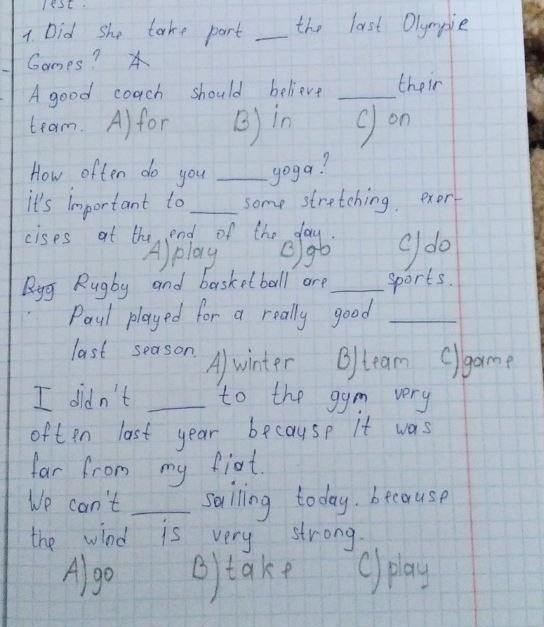 Test.
1. Did she take part __ the last Olympic
Games?
A good coach should believe ____ their
team. A) for B) in C) on
How often do you ____ yoga?
it's important to ____ some stretching exer-
cises at the end of the day.
A) play B) go C) do
Ryg Rugby and basketball are ____ sports.
Paul played for a really good ____
last season. A) winter B) team C) game
I didn't ____ to the gym very
often last year because it was
far from my flat.
We can't ____ sailing today. because
the wind is very strong.
A) go B) take C) play